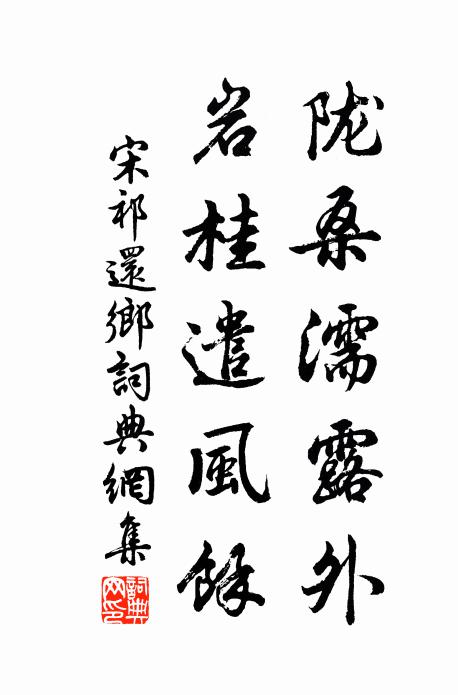 陇桑濡露外
岩桂遣風餘
宋祁還鄉詞典網集
詞典網印